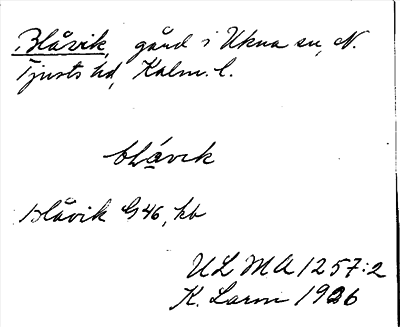 Blåvik, gård i Ukna sn, N.
Tjusts hd, Kalm. l.
blåvık
Blåvik G46, kb
ULMA 1257:2
K. Larm 1926